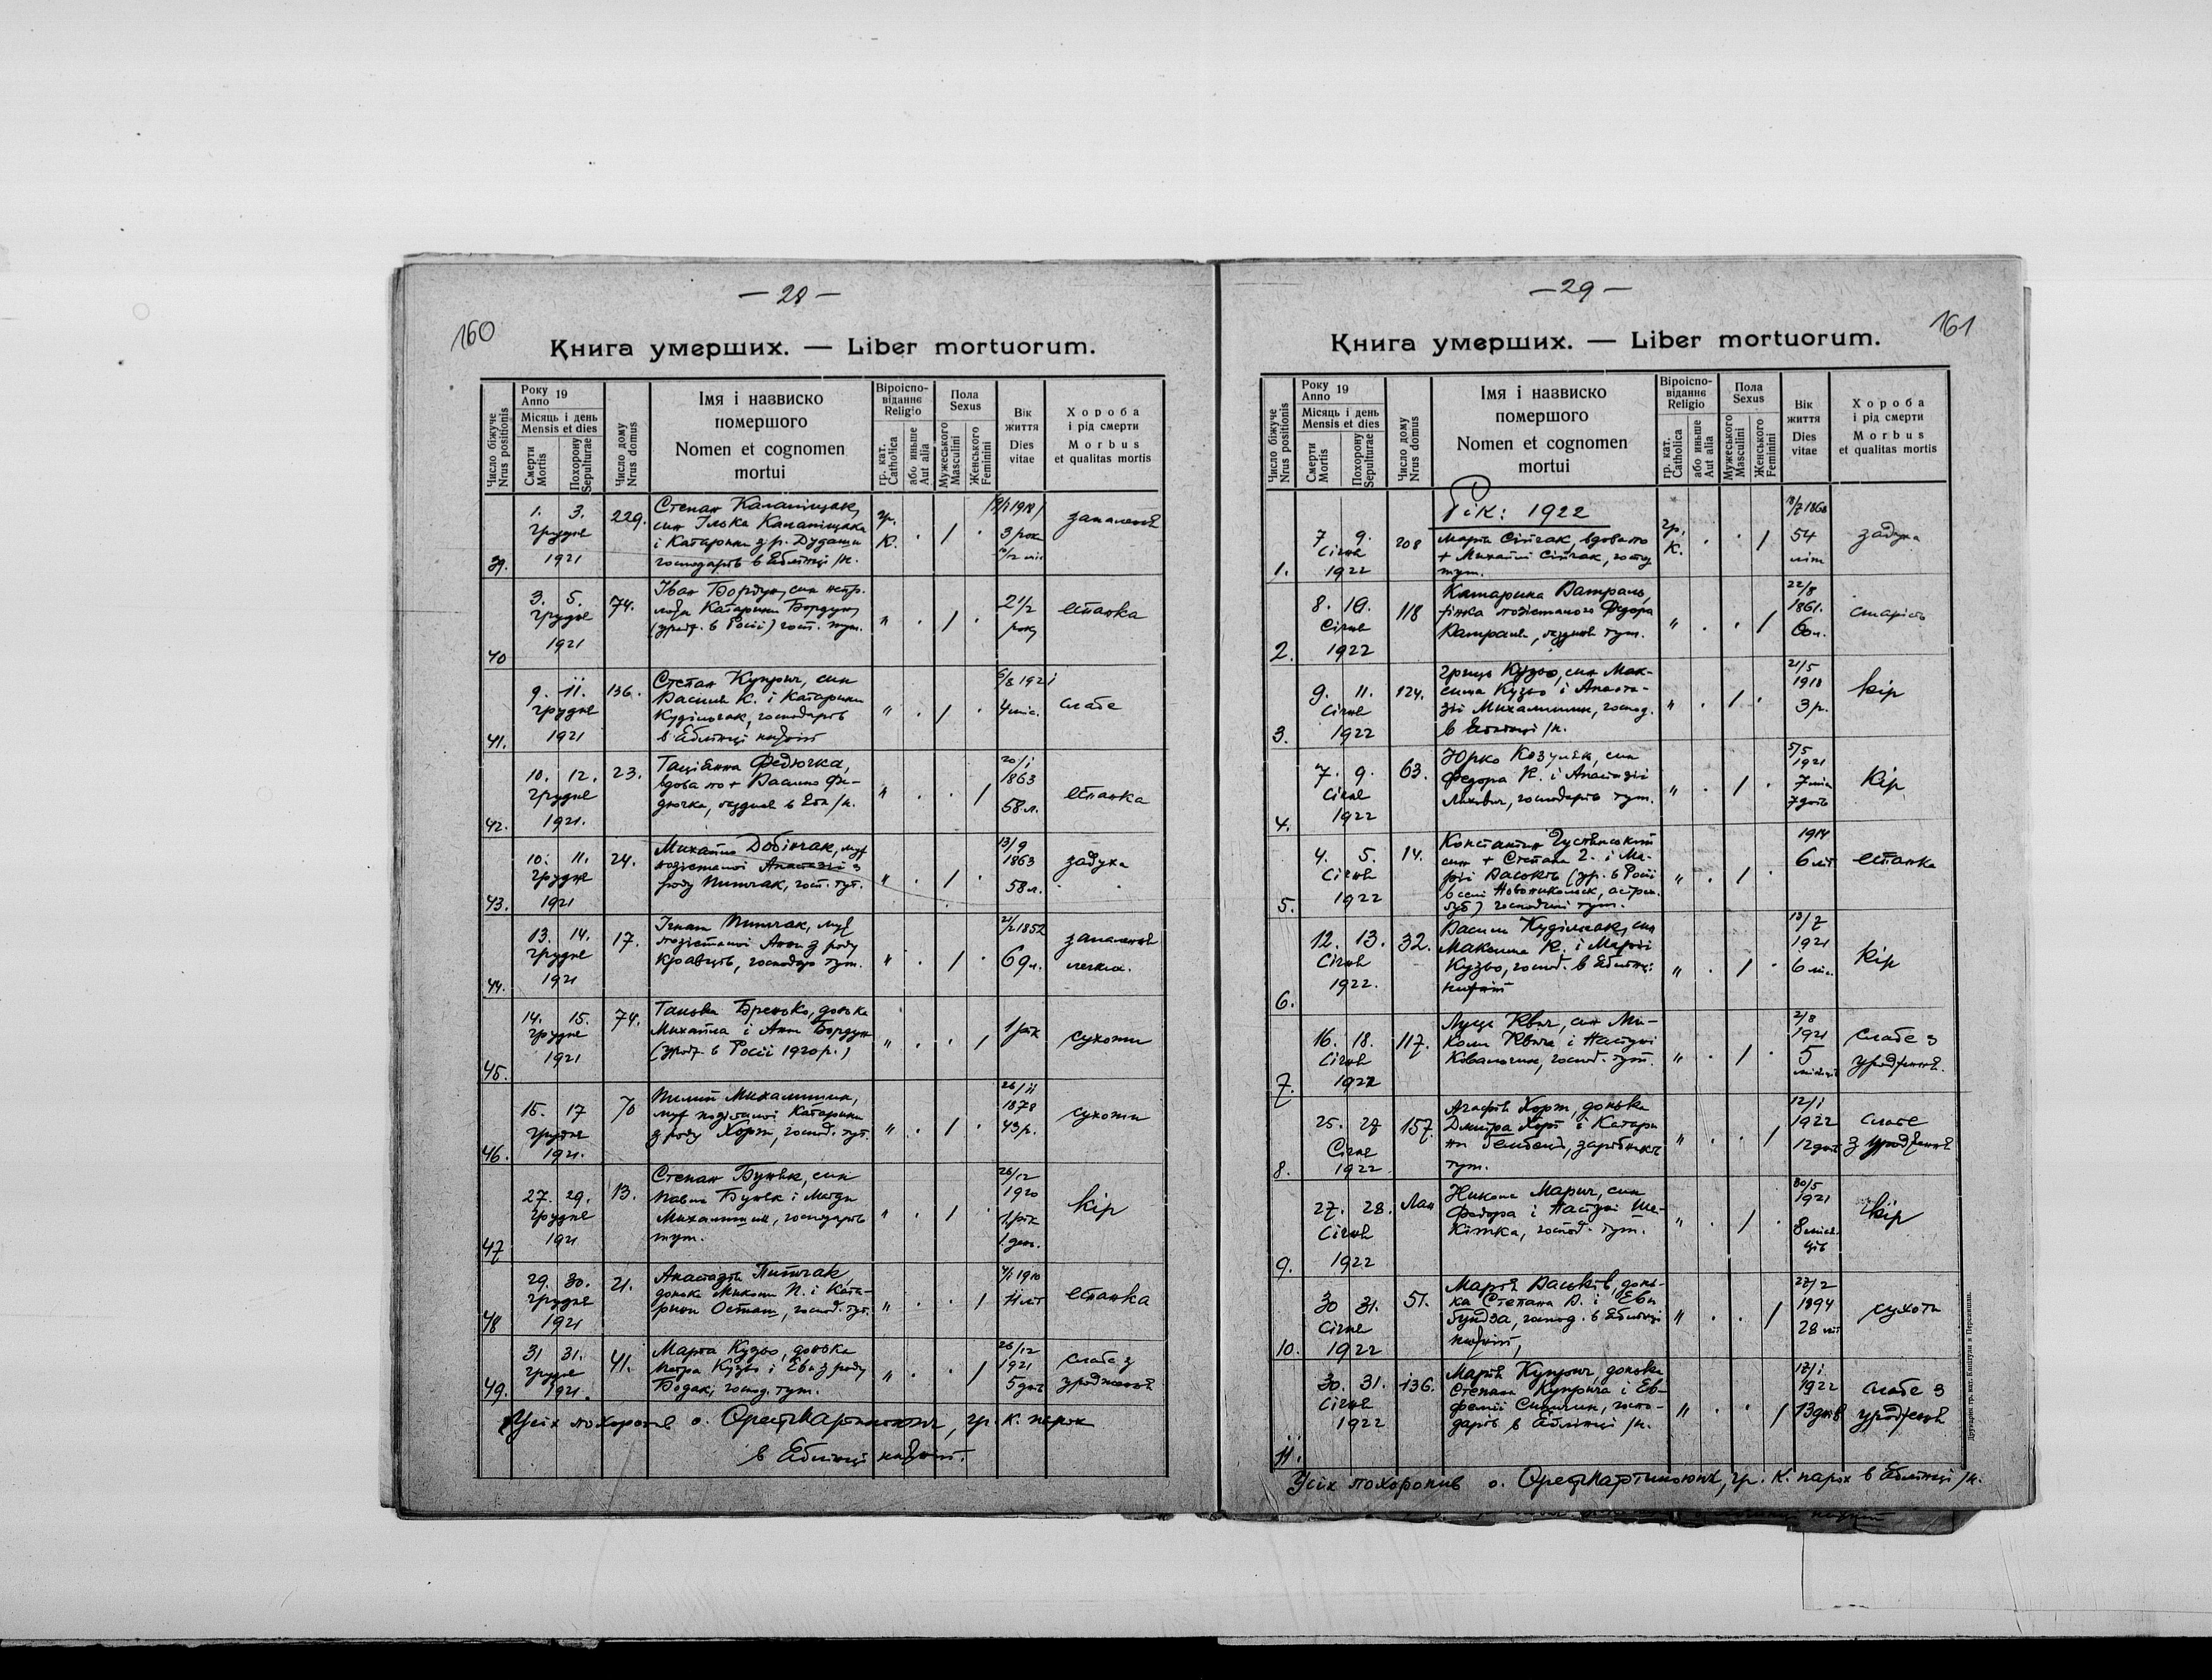 — 28 —
160
Книга умерших. — Liber mortuorum.
Число біжуче
Nrus positionis
Року 19
Anno
Місяць і день
Mensis et dies
Смерти
Mortis
Похорону
Sepulturae
Число дому
Nrus domus
Імя і назвиско
помершого
Nomen et cognomen
mortui
Віроіспо-
віданнє
Religio
гр. кат.
Catholica
або иньше
Aut alia
Пола
Sexus
Мужеського
Masculini
Женського
Feminini
Вік
життя
Dies
vitae
Хороба
і рід смерти
Morbus
et qualitas mortis
39.
1. 3.
Грудня
1921
229.
Степан
син Ілька
і Катарини з р.
господарів в Еблінці /н.
гр.
к.
3 роки
40
3. 5.
Грудня
1921
74.
Іван Бордун, син
Катарини Бордун,
(урод. в Росії) госп. тут.
"
2 1/2
року
еспанка
41.
9. 11.
грудня
1921
136.
Степан Куприч, син
Василя К. і Катарини
господарів
в Еблінці
"
4 міс.
слабе
42.
10. 12.
Грудня
1921.
23.
Таціянна Федючка,
вдова по + Василю Фе-
дючка,
"
20/1
1863
58 л.
еспанка
43.
10. 11.
Грудня
1921
24.
Михайло Добінчак, муж
Анастазії з
роду Питчак, госп. тут.
"
13/9
1863
58 л.
задуха
44.
13. 14.
Грудня
1921
17.
Ігнат Питчак, муж
Анни з роду
Кравців, господар тут.
"
69 л.
запалення
легких.
45.
14. 15.
Грудня
1921
74.
Танька Бренько, донька
Михайла і Анни Бордун
(урод. в Росії 1920 р.)
"
1 рік
сухоти
46.
15. 17
Грудня
1921.
70
Михалишин,
муж Катарини
з роду Хорт, господ. тут.
"
26/11
1878
43 р.
сухоти
47
27. 29.
Грудня
1921
13.
Степан Буняк, син
Павла Буняк і Магди
Михалишин, господарів
тут.
"
26/12
1920
1 рік
1 день.
кір
48
29. 30.
Грудня
1921
21.
Анастазія Питчак
донька Миколи П. і Ката-
рини Осташ, господ. тут.
"
4/1 1910
11 літ
еспанка
49.
31 31.
Грудня
1921.
41.
Марта Кузьо, донька
Петра Кузьо і Еви з роду
Бодак, господ. тут.
"
26/12
1921
5 днів
слабе з
уродження
Усіх похоронив о. Орест Мартинович, гр. к. парох
в Еблінці нижній.
— 29 —
161
Книга умерших. — Liber mortuorum.
Число біжуче
Nrus positionis
Року 19
Anno
Місяць і день
Mensis et dies
Смерти
Mortis
Похорону
Sepulturae
Число дому
Nrus domus
Імя і назвиско
помершого
Nomen et cognomen
mortui
Віроіспо-
віданнє
Religio
гр. кат.
Catholica
або иньше
Aut alia
Пола
Sexus
Мужеського
Masculini
Женського
Feminini
Вік
життя
Dies
vitae
Хороба
і рід смерти
Morbus
et qualitas mortis
Рік: 1922
1.
7 9.
Січня
1922
208
Марта Сійчак, вдова по
+ Михайлі Сійчак, господ.
тут.
гр.
к.
54
літ
задуха
2.
8. 10.
Січня
1922
118
Катарина Ватраль,
жінка Федора
тут.
"
22/8
1861.
60 л.
старість
3.
9. 11.
Січня
1922
124.
Гриць Кузьо, син Мак-
сима Кузьо і Анаста-
зії Михалишин, господ.
в Еблінці /н.
"
21/5
1918
3 р.
кір
4.
7. 9.
Січня
1922
63.
Юрко син
Федора К. і Анастазії
господарів тут.
"
5/5
1921
7 міс.
7 днів
Кір
5.
4. 5.
Січня
1922
14.
Константин
син + Степана Г. і Ма-
рії Васьків (ур. в Росії
в селі Новоникольск,
губ) господині тут.
"
1914
6 літ
еспанка
6.
12. 13.
Січня
1922.
32.
Василь син
Максима К. і Марії
Кузьо, господ. в Еблінці
"
13/7
1921
6 міс.
Кір
7.
16. 18.
Січня
1922
117.
Луць Квич, син Ми-
коли Квича і Настуні
господ. тут.
"
2/8
1921
5
місяців
слабе з
уродження.
8.
25. 27
Січня
1922
157.
Агафія Хорт, донька
Дмитра Хорт і Катари
ни зарібників
тут.
"
12/1
1922
12 днів
слабе
з уродження
9.
27. 28.
Січня
1922
Лан
Никола Марич, син
Федора і Настуні Ше-
кітка, господ. тут.
"
30/5
1921
8 міся-
ців
кір
10.
30 31.
Січня
1922
51.
Марія Васьків, донь-
ка Степана В. і Еви
господ. в Еблінці
нижній,
"
27/2
1894
28 літ
сухоти
11.
30. 31.
Січня
1922
136.
Марія Куприч, донька
Степана Куприча і Ев-
фемії госпо-
дарів в Еблінці /н.
"
17/1
1922
13 днів
слабе з
уродження
Усіх похоронив о. Орест Мартинович, гр. к. парох в Еблінці /н.
Друкарня гр. кат. Капітули в Перемишли.